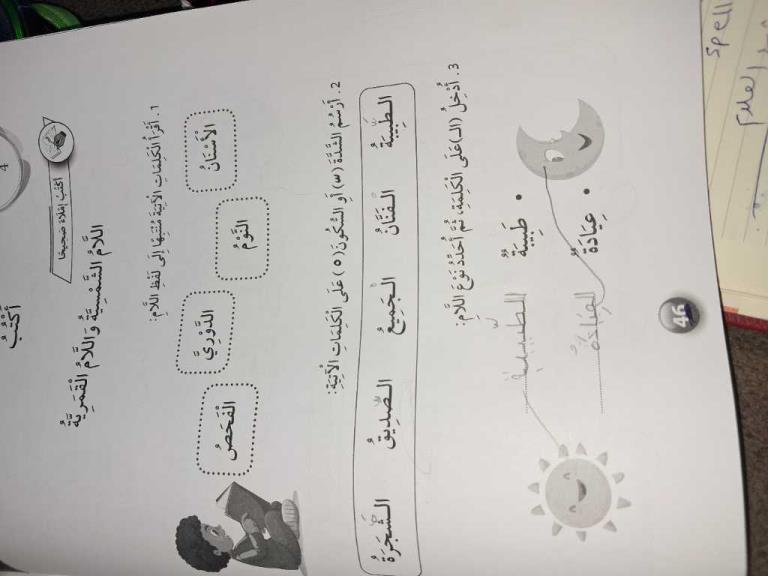 أَكْتُبُ
أَكْتُبُ إِمْلَاءً صَحِيحًا
اللَّامُ الشَّمْسِيَّةُ وَاللَّامُ الْقَمَرِيَّةُ
1. أَقْرَأُ الْكَلِمَاتِ الْآتِيَةَ مُنْتَبِهًا إِلَى لَفْظِ اللَّامِ:
الْأَسْنَانُ النَّوْمُ الدَّوْرِيُّ الْفَحْصُ
2. أَرْسُمُ الشَّدَّةَ (ّ) أَوِ السُّكُونَ (ْ) عَلَى الْكَلِمَاتِ الْآتِيَةِ:
الطَّبِيبَةُ الفَنَّانُ الْجَمِيعُ الصَّدِيقُ الشَّجَرَةُ
3. أُدْخِلُ (الـ) عَلَى الْكَلِمَةِ، ثُمَّ أُحَدِّدُ نَوْعَ اللَّامِ:
• طَبِيبَةٌ الطَّبيبة
• عِيَادَةٌ العِيَادَةُ
46
4
Spell